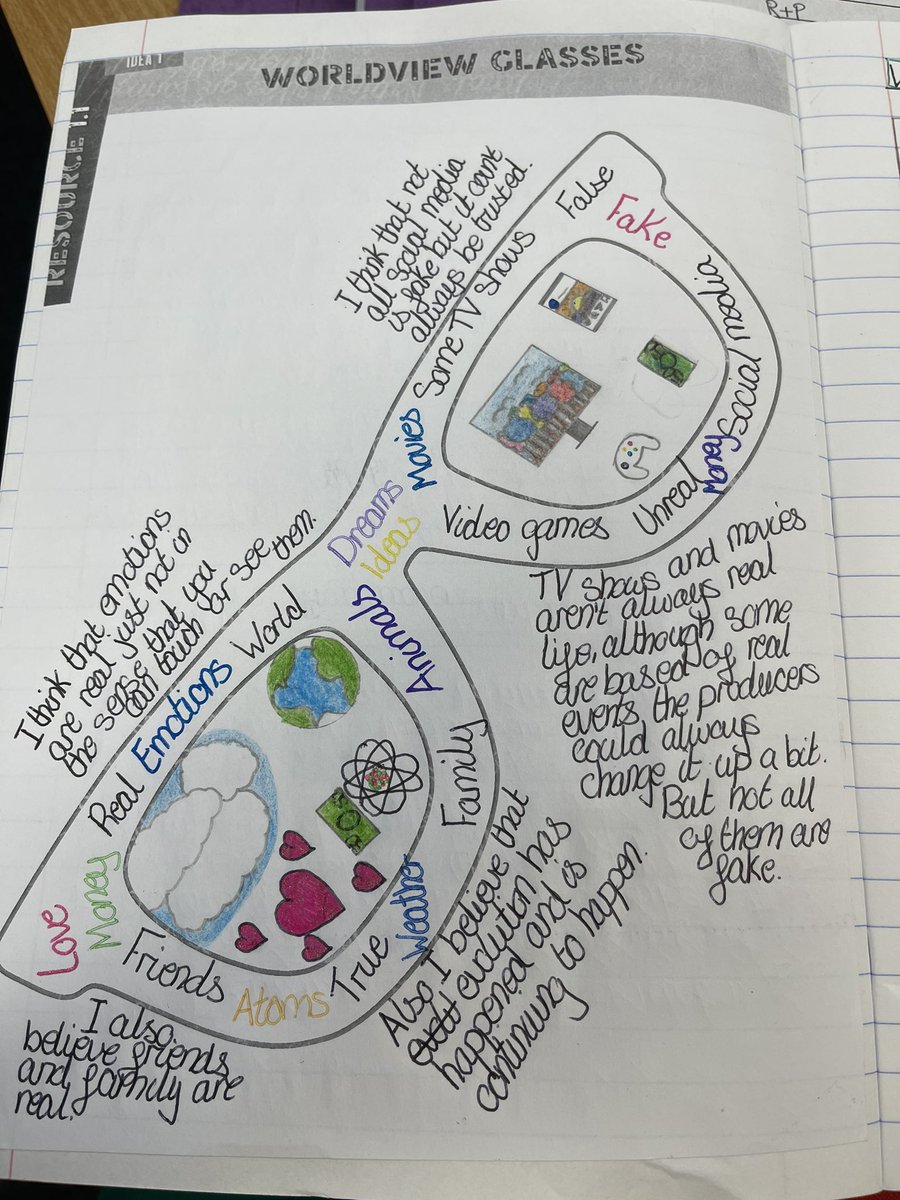 R+P
IDEA 1
WORLDVIEW GLASSES
RESOURCE 1.1
I think that not
all social media
is fake but it cant
always be trusted.
False
Fake
Some TV shows
Social media
Money
Unreal
Movies
Video games
Dreams
Ideas
TV shows and movies
aren't always real
life, although some
are based of real
events, the producers
could always
change it up a bit.
But not all
of them are
fake.
I think that emotions
are real just not in
the sense that you
can touch or see them.
World
Animals
Emotions
Real
Family
Money
Love
Weather
Friends
True
Atoms
Also I believe that
evolution has
happened and is
continuing to happen.
I also
believe friends
and family are
real.